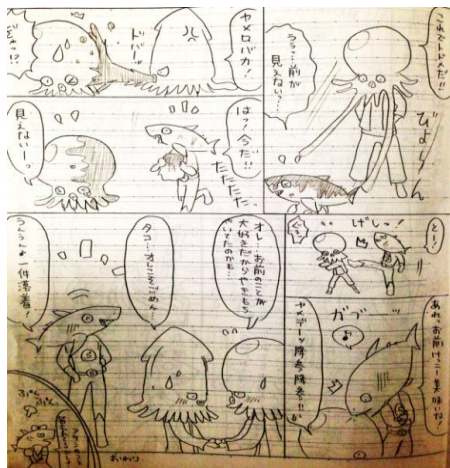 これでトドメだ!!
うぅっ…前が
見えない…
びよ〜ん
ヤメロバカ!
ドバーッ
はっ!今だ!!
たたたたた、
見えないーっ
とーっ
げしっ!
あれっお前けっこー美味いね!
ガブッ
ヤメテーッ降参降参!!
オレ…お前のことが
大好きだからやきもち
やいてたのかも…
タコ…オレこそごめん…
うんうんっ一件落着!